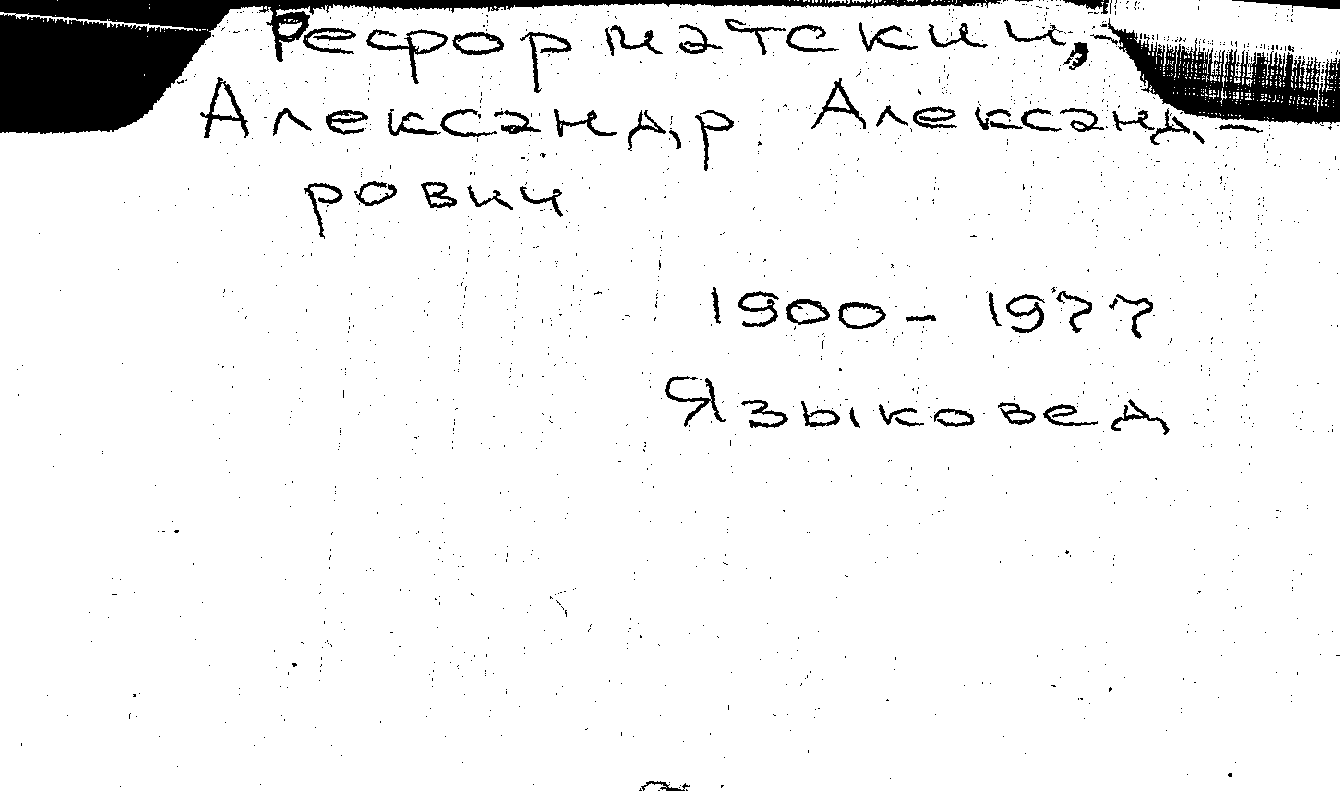 Реформатский,
Александр Александ-
рович
1900 - 1977
Языковед